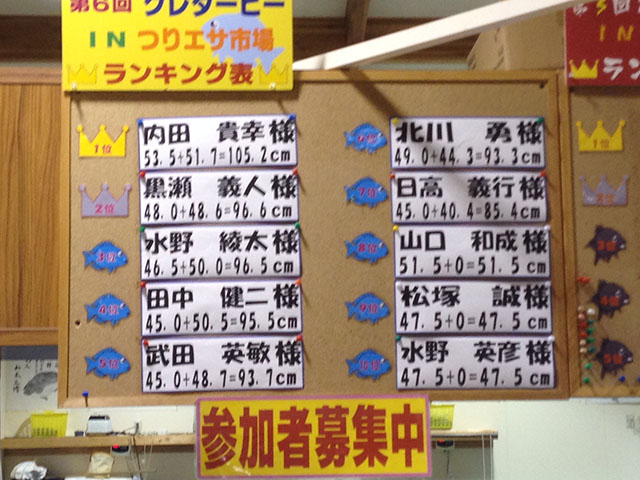 第6回 グレダービー
IN つりエサ市場
ランキング表
1位
内田 貴幸様
53.5+51.7=105.2cm
2位
黒瀬 義人様
48.0+48.6=96.6cm
3位
水野 綾太様
46.5+50.0=96.5cm
4位
田中 健二様
45.0+50.5=95.5cm
5位
武田 英敏様
45.0+48.7=93.7cm
6位
北川 勇様
49.0+44.3=93.3cm
7位
日高 義行様
45.0+40.4=85.4cm
8位
山口 和成様
51.5+0=51.5cm
9位
松塚 誠様
47.5+0=47.5cm
10位
水野 英彦様
47.5+0=47.5cm
参加者募集中
1位
2位
3位
4位
5位